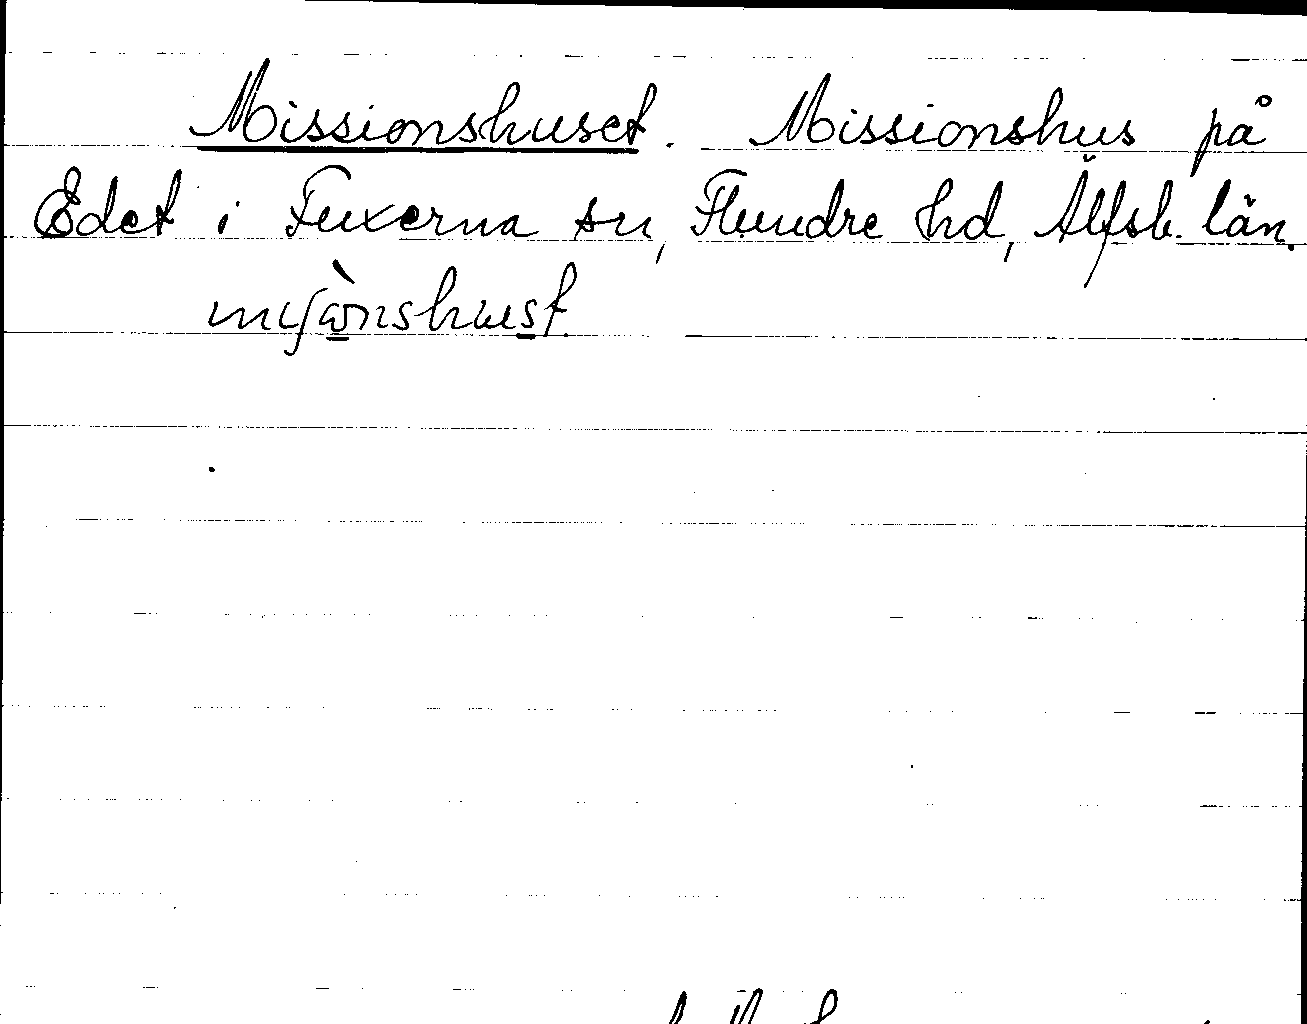 Missionshuset. Missionshus på
Edet i Fuxerna sn, Flundre hd, Älfsb. län.